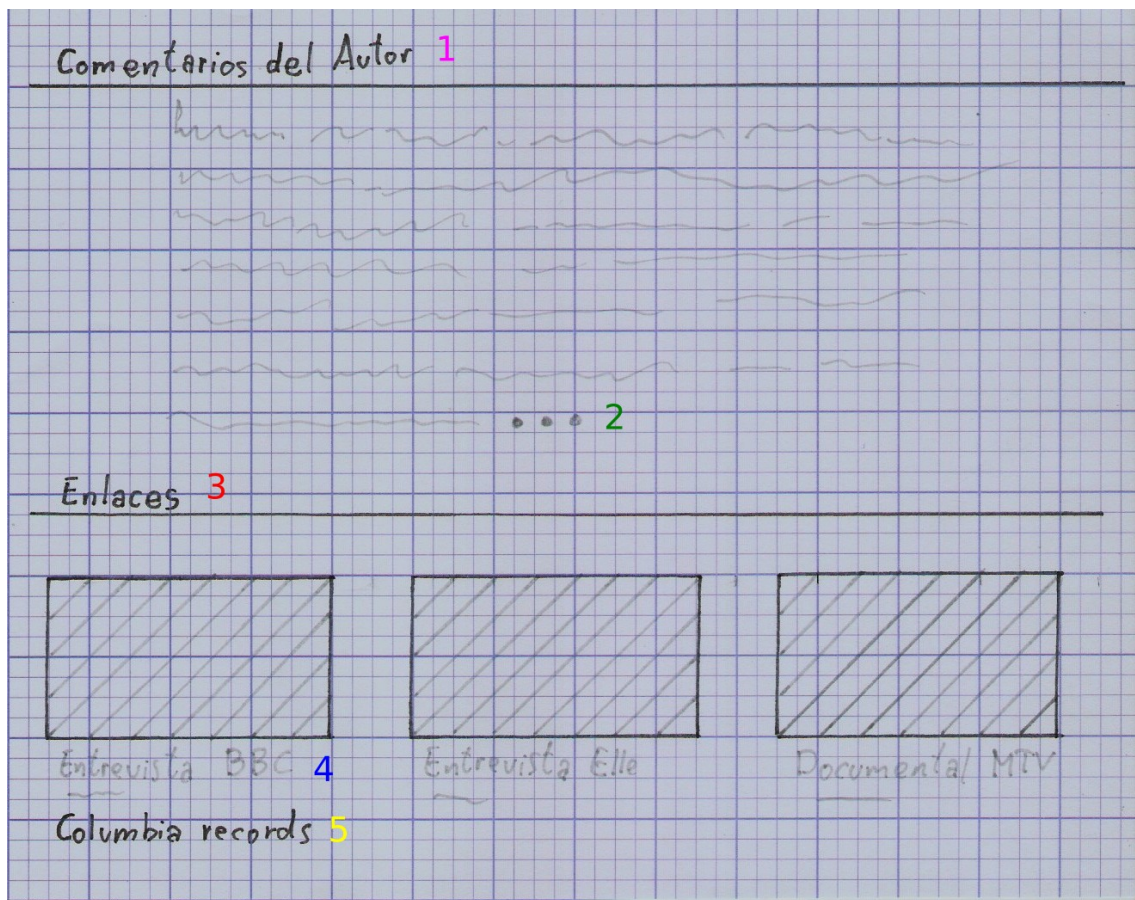 Comentarios del Autor 1
... 2
Enlaces 3
Entrevista BBC 4 Entrevista Elle Documental MTV
Columbia records 5